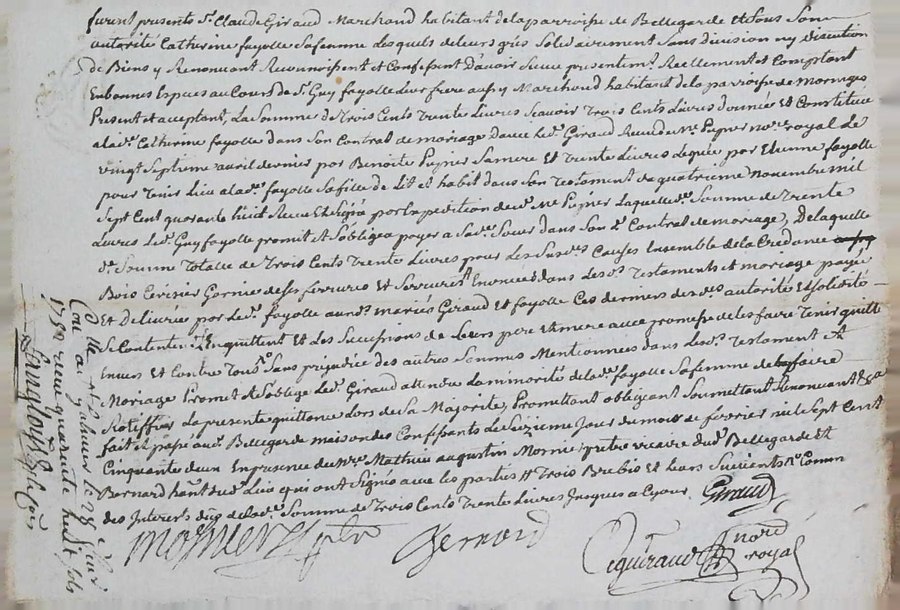 furent presents Sr. Claude Giraud Marchand habitant dela parroisse de Bellegarde et Sous Son
autorité Catherine fayolle Safemme Lesquels deleurs grés Solidairement Sans division ny discution
de Biens y Renonçant Reconnoissent et Confessent D'avoir Receu presentemt. Reellement et Comptant
En bonnes Especes au Cours de Sr. Guy fayolle Leur frere aussy Marchand habitant dela parroisse de Mornages
Present et acceptant, La Somme de trois Cents trente Livres Scavoir trois Cents Livres donnée et Constituée
alad. Catherine fayolle dans Son Contrat de mariage Avec led. Giraud Receu de Me. Peyner nore. royal Le
vingt Septieme avril dernier par Benoite Peyner Samere et trente Livres Leguée par Etienne fayolle
pour tenir Lieu alad. fayolle Safille de Lit et habit dans Son testament du quatrieme Novembre mil
Sept Cent quarante huit Receu Et Signé par Expedition dud. Me. Peyner Laquelle de. Somme de trente
Livres Led. Guy fayolle promit et S'obligea payer a Sad. Soeur dans Son d. Contrat de mariage, De laquelle
de. Somme Totalle de Trois Cents trente Livres pour Les Susd. Causes Ensemble dela Credance
Bois Cerisier Garnie de Ses ferrures et Serrures Enoncées dans Lesd. Testaments et mariage payée
Et Délivrée par Led. fayolle auxd. mariés Giraud et fayolle Ces derniers desd. autorité et Solidité
Se Contentent, L'En quittent et Les Successions de Leurs pere et mere avec promesse de Les faire Tenir quitte
Envers et Contre Tous, Sans prejudice des autres Sommes Mentionnées dans Lesd. Testament Et
Mariage Promet et S'oblige Led. Giraud attendu La minorité de lad. fayolle Safemme de faire
Ratiffier La presente quittance Lors de Sa Majorité, Promettant obligeant Soumettant Renonçant
fait et passé aud. Bellegarde maison des Confessants Le Seizieme Jour du mois de fevrier mil Sept Cent
Cinquante deux En presence de Mre. Mathieu augustin Mornier pretre vicaire dud. Bellegarde et
Bernard habt. dud. Lieu qui ont Signé avec Les parties # Trois Brebis et Leurs Suivants Comm
des Interets de lad. Somme de Trois Cents trente Livres Jusques a Ce jour. Giraud
Mornier ptre Bernard
Peguiraud nore royal
Conlle. a le 28 fevrier
1752 receu quarante huit sols
Langlois